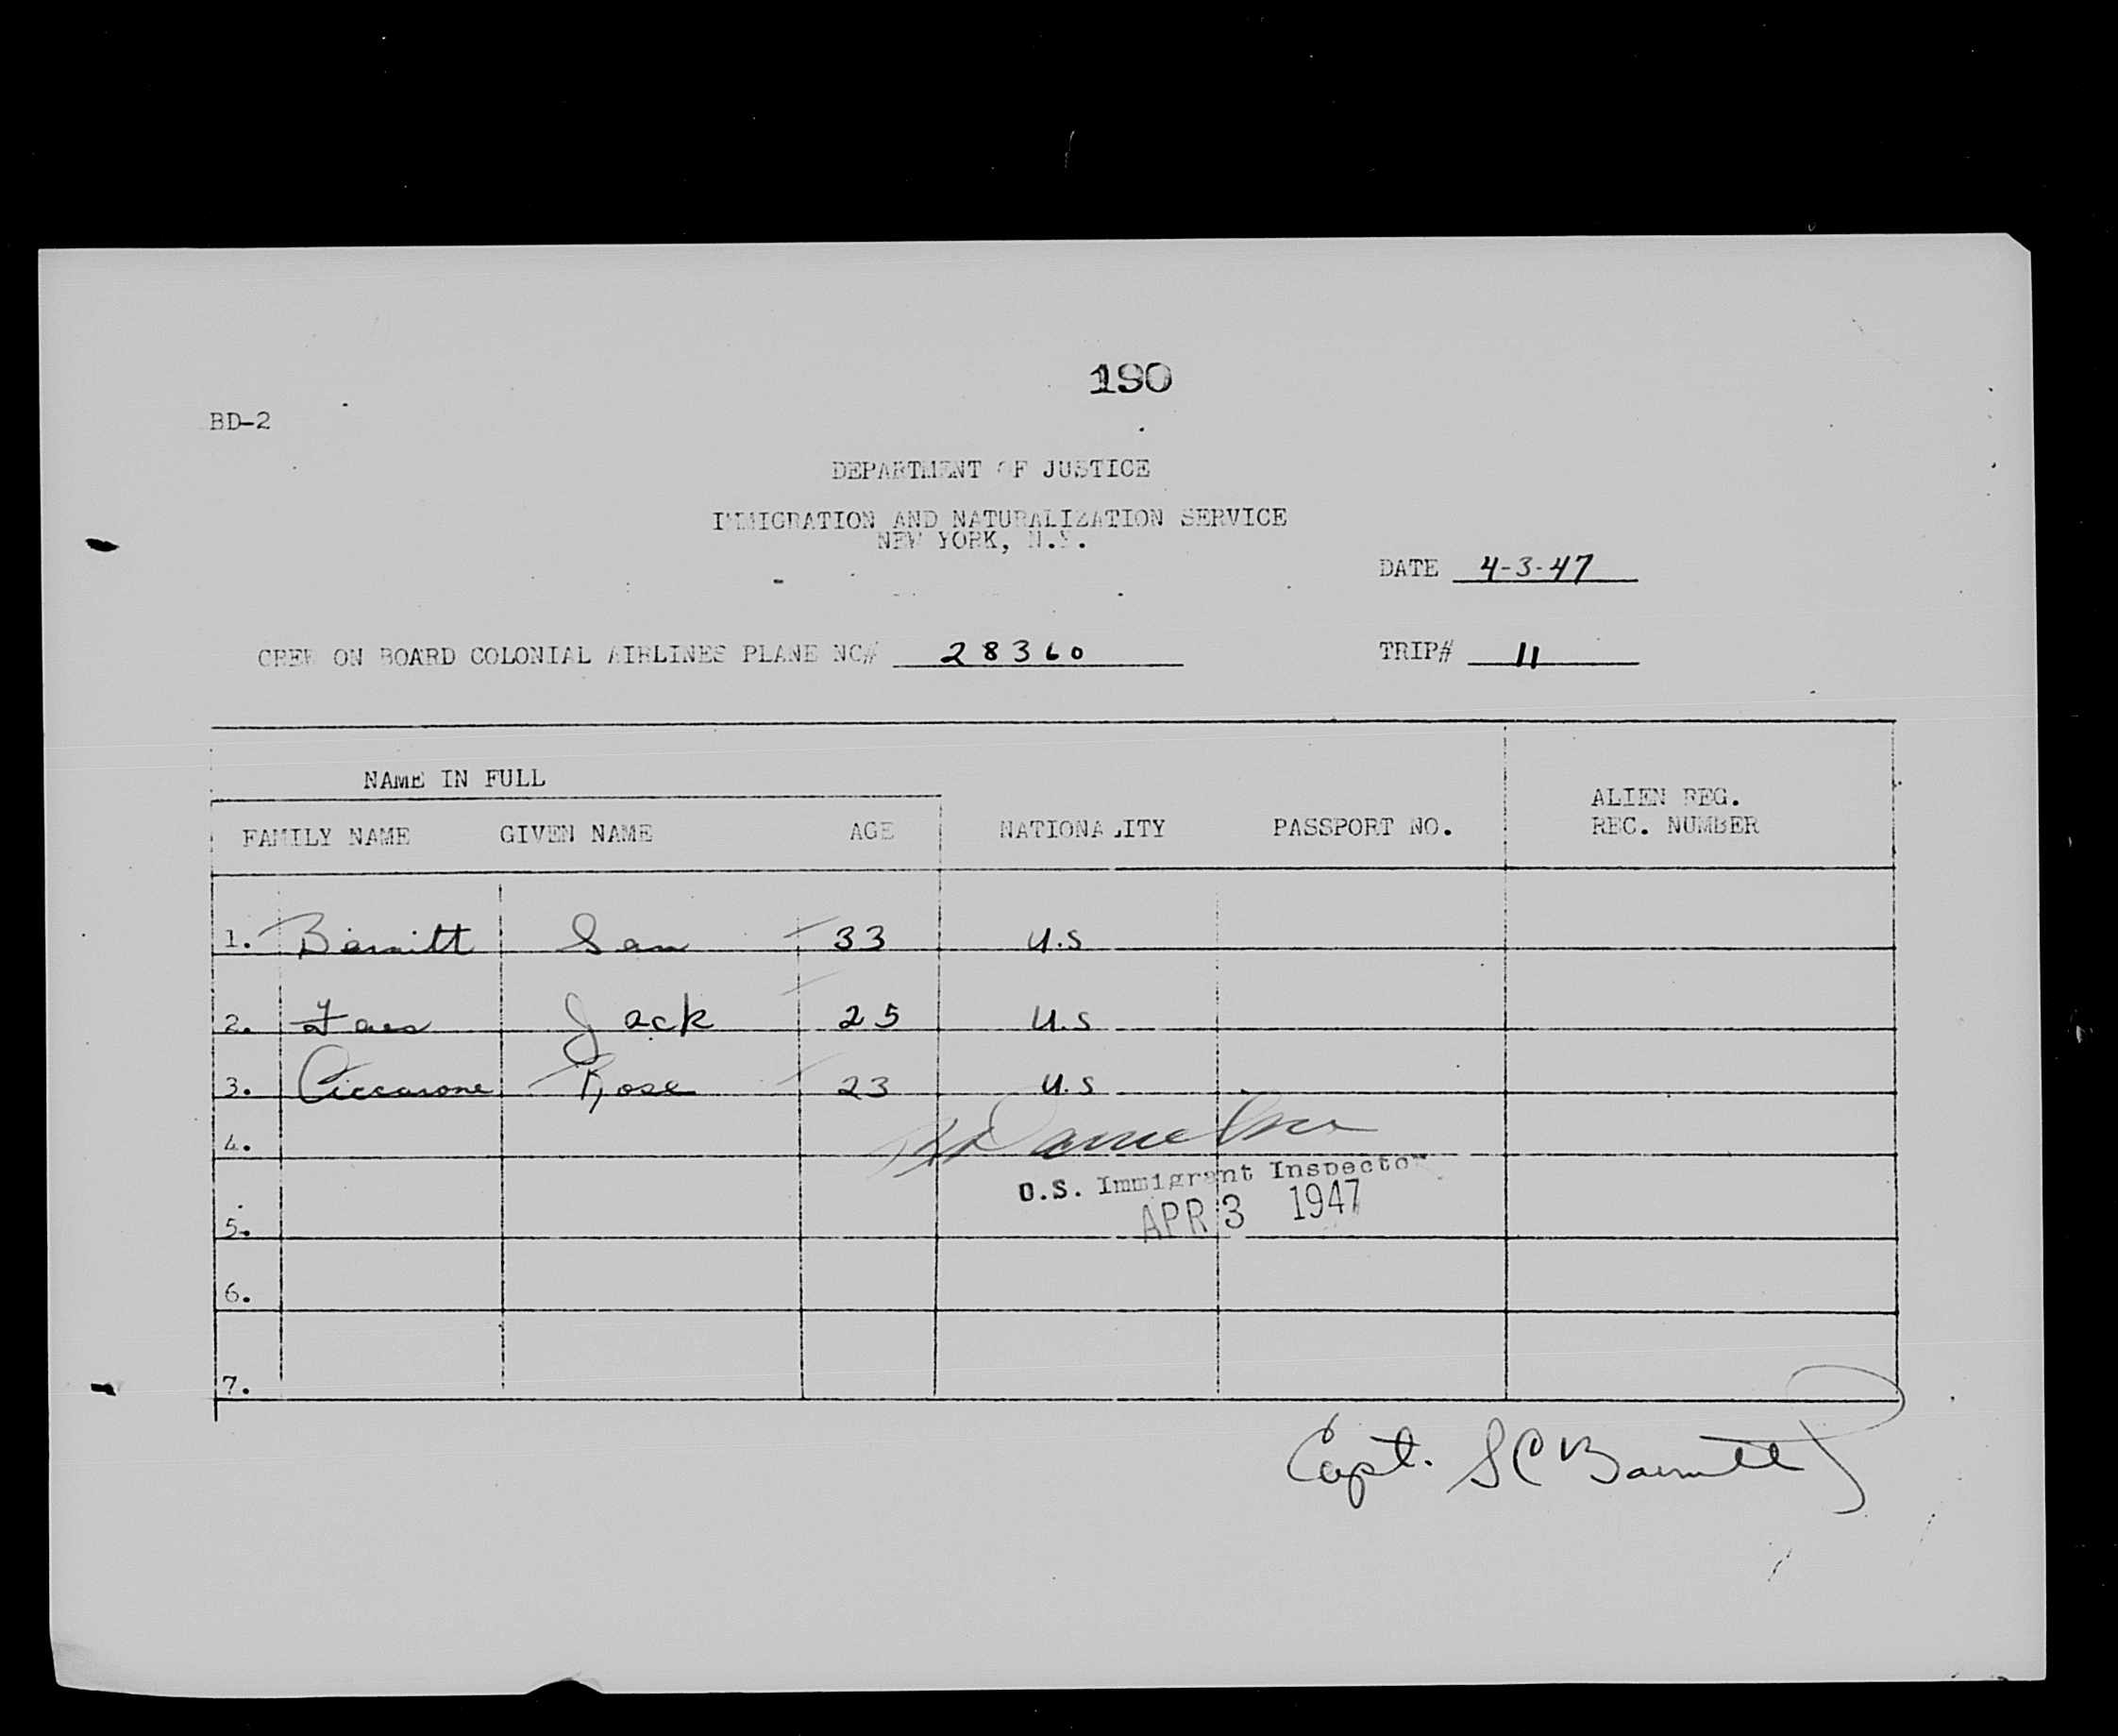 190
BD-2
DEPARTMENT OF JUSTICE
IMMIGRATION AND NATURALIZATION SERVICE
NEW YORK, N.Y.
DATE 4-3-47
CREW ON BOARD COLONIAL AIRLINES PLANE NC# 28360 TRIP# 11
NAME IN FULL
FAMILY NAME GIVEN NAME AGE NATIONALITY PASSPORT NO. ALIEN REG. REC. NUMBER
1. Sam 33 U.S
2. Jack 25 U.S
3. Ciccarone Rose 23 U.S
4.
U.S. Immigrant Inspector
APR 3 1947
5.
6.
7.
Capt. S C